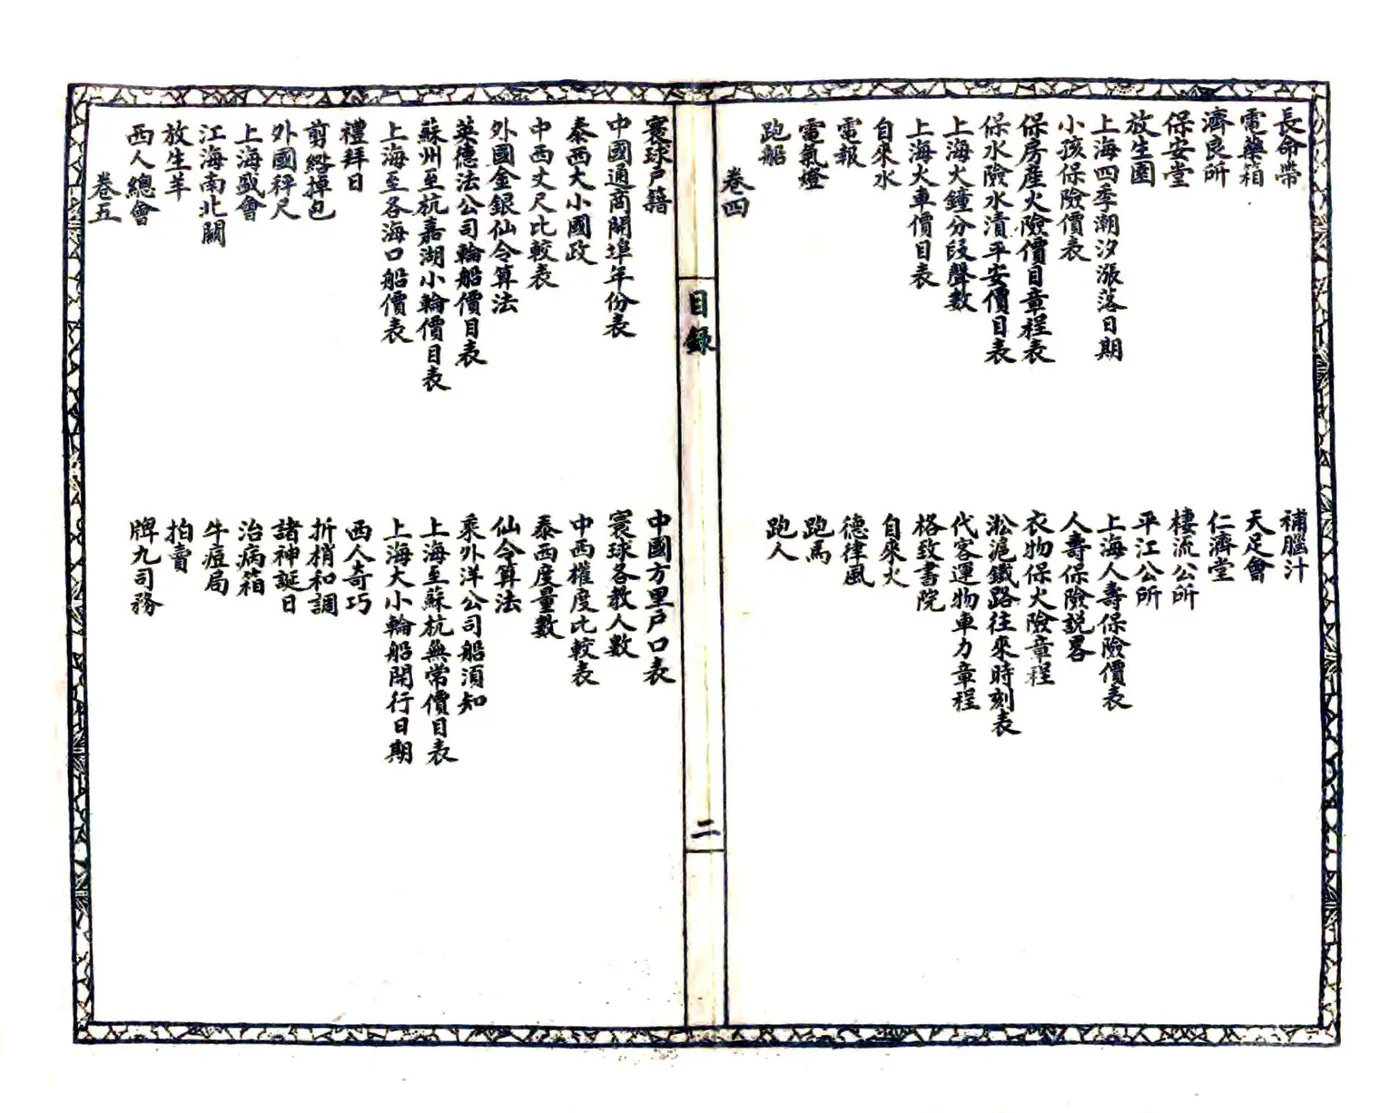 長命帶 補腦汁
電藥箱 天足會
濟良所 仁濟堂
保安堂 棲流公所
放生園 平江公所
上海四季潮汐漲落日期 上海人壽保險價表
小孩保險價表 人壽保險說畧
保房產火險價目章程表 衣物保火險章程
保水險水漬平安價目表 淞滬鐵路往來時刻表
上海火鐘分段聲數 代客運物車力章程
上海火車價目表 格致書院
自來水 自來火
電報 德律風
電氣燈 跑馬
跑船 跑人
卷四
目錄 二
寰球戶籍 中國方里戶口表
中國通商開埠年份表 寰球各教人數
泰西大小國政 中西權度比較表
中西丈尺比較表 泰西度量數
外國金銀仙令算法 仙令算法
英德法公司輪船價目表 乘外洋公司船須知
蘇州至杭嘉湖小輪價目表 上海至蘇杭無常價目表
上海至各海口船價表 上海大小輪船開行日期
禮拜日 西人奇巧
剪綹掉包 折梢和調
外國秤尺 諸神誕日
上海盛會 治病箱
江海南北關 牛痘局
放生羊 拍賣
西人總會 牌九司務
卷五